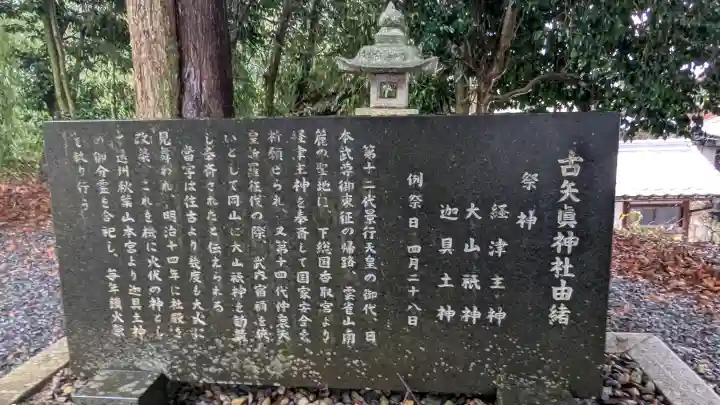 古矢眞神社由緒
祭神
経津主神
大山祇神
迦具土神
例祭日 四月二十八日
第十二代景行天皇の御代、日
本武尊御東征の帰路、雲雀山南
麓の聖地に、下総国香取宮より
経津主神を奉斎して国家安全を
祈願せられ、又第十四代仲哀天
皇新羅征伐の際、武内宿祢を
いとして同山に大山祇神を勧
し奉斎されたと伝えられる
当字は往古より幾度も大火に
見舞われ、明治十四年に社殿を
改築、これを機に火伏の神とし
遠州秋葉山本宮より迦具土神
の御分霊を合祀し、毎年鎮火祭
を執り行う